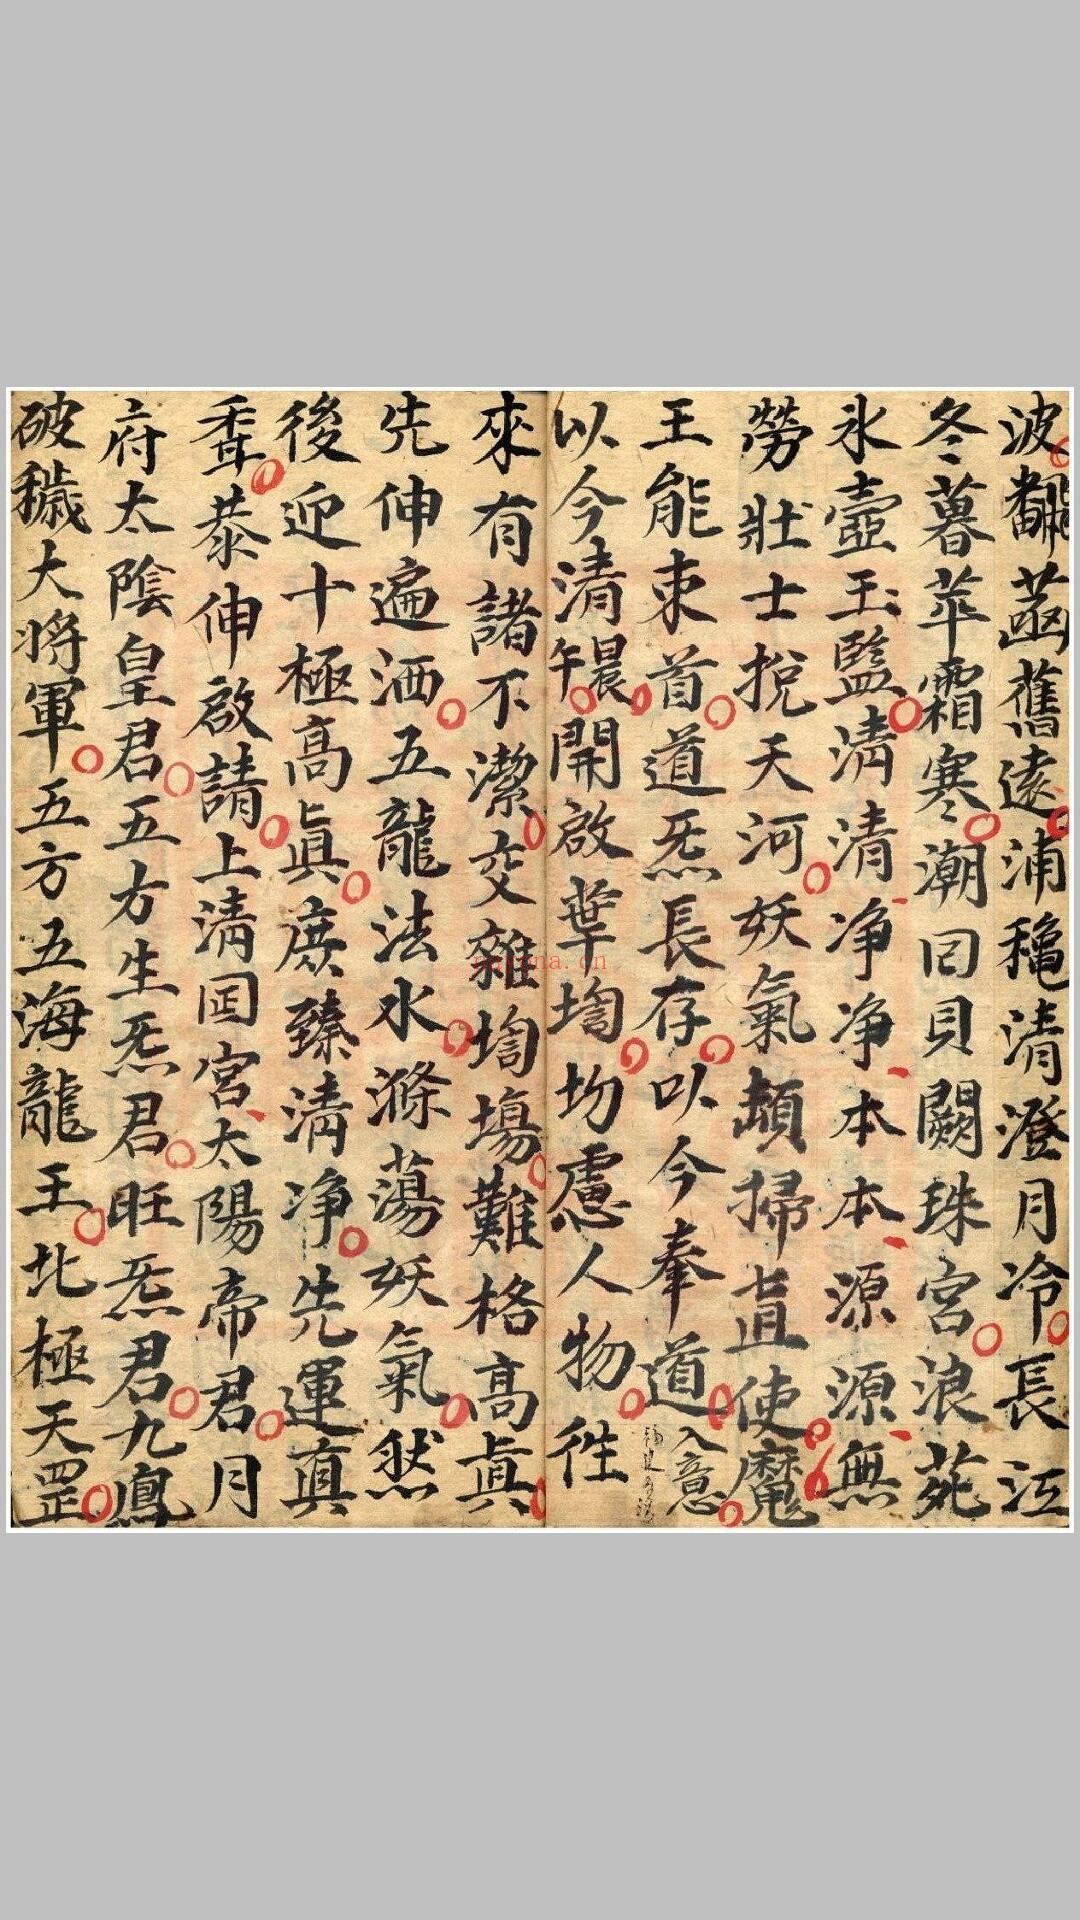 波翻菡舊遠浦穐清澄月冷長江
冬暮華霜寒潮囙貝闕珠宮浪苑
氷壺玉鑑清清净净本本源源無
勞壯士挽天河妖氣頻掃直使魔
王能束首道炁長存以今奉道入意
以今清晨午開啟筆壇場慮人物徃
來有諸不潔交雜壇場難格高眞
先伸遍洒五龍法水滌蕩妖氣然
後迎十極高眞庶臻清净先運眞
香恭伸啟請上清囙宮太陽帝君月
府太陰皇君五方生炁君旺炁君九鳳
破穢大將軍五方五海龍王北極天罡